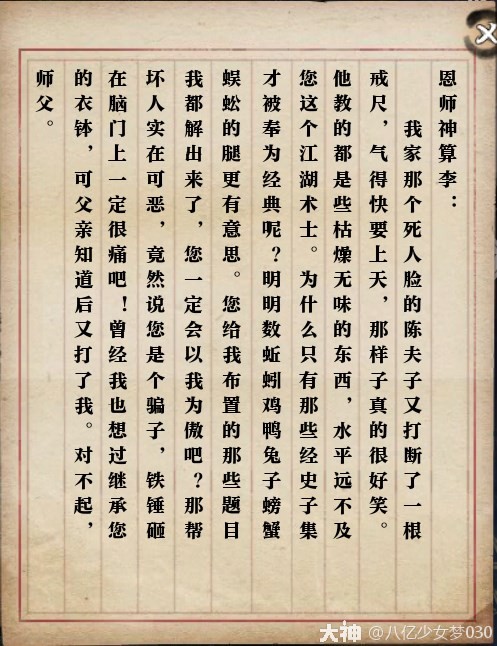 恩师神算李：
我家那个死人脸的陈夫子又打断了一根
戒尺，气得快要上天，那样子真的很好笑。
他教的都是些枯燥无味的东西，水平远不及
您这个江湖术士。为什么只有那些经史子集
才被奉为经典呢？明明数蚯蚓鸡鸭兔子螃蟹
蜈蚣的腿更有意思。您给我布置的那些题目
我都解出来了，您一定会以我为傲吧？那帮
坏人实在可恶，竟然说您是个骗子，铁锤砸
在脑门上一定很痛吧！曾经我也想过继承您
的衣钵，可父亲知道后又打了我。对不起，
师父。
大神 @八亿少女梦030